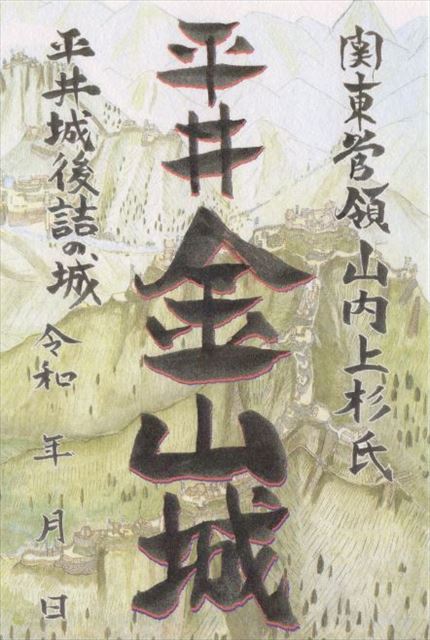 関東管領山内上杉氏
平井金山城
平井城後詰の城
令和 年 月 日